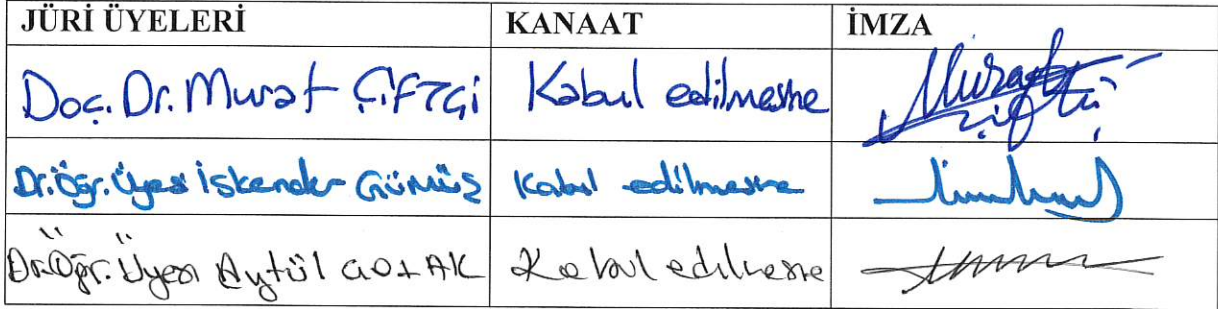 JÜRİ ÜYELERİ KANAAT İMZA
Doç. Dr. Murat ÇİFTÇİ Kabul edilmesine Murat Çiftçi
Dr. Öğr. Üyesi İskender GÜMÜŞ Kabul edilmesine
Dr. Öğr. Üyesi Aytül Kabul edilmesine